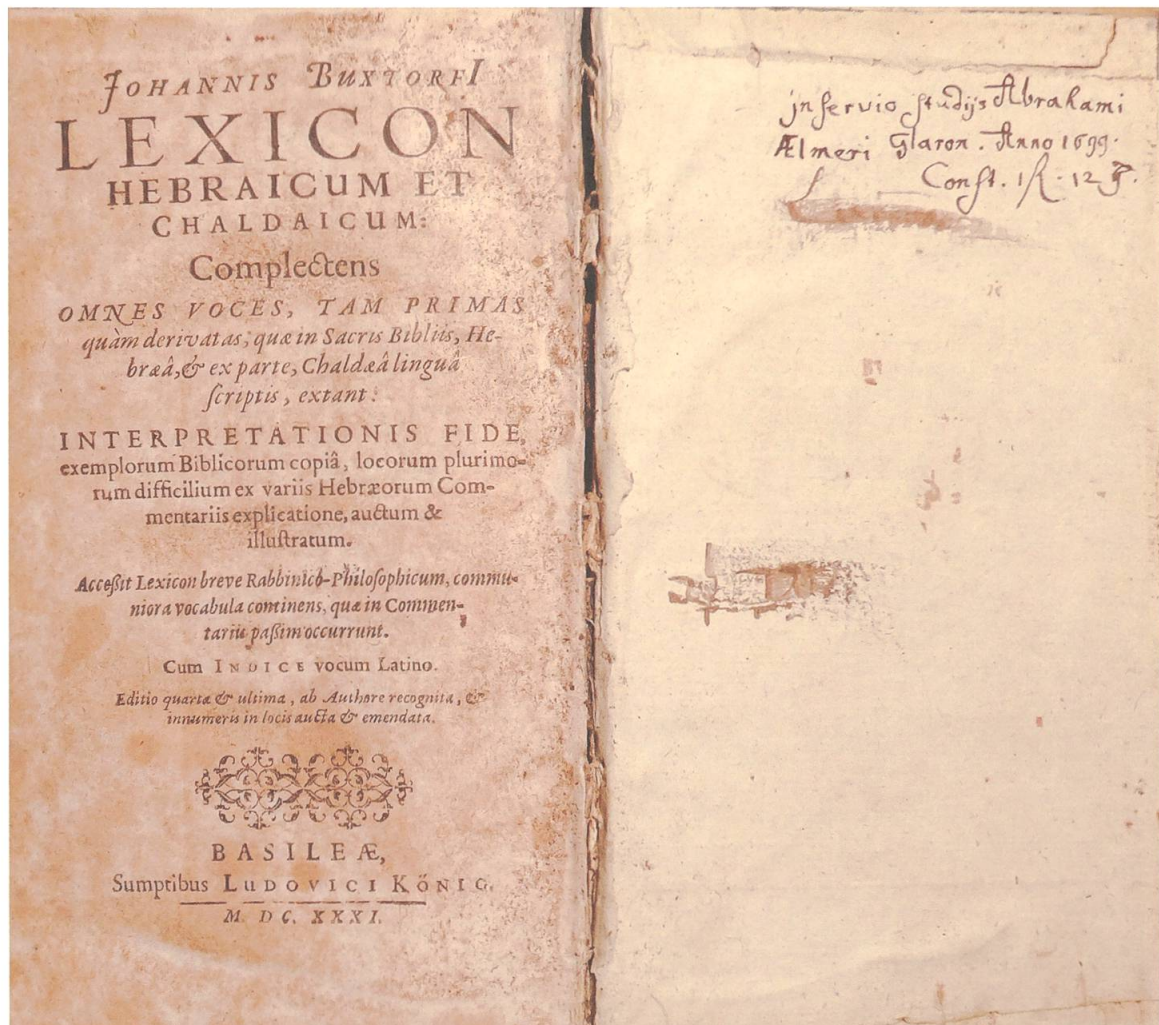 JOHANNIS BUXTORFI
LEXICON
HEBRAICUM ET
CHALDAICUM:
Complectens
OMNES VOCES, TAM PRIMAS
quàm derivatas, quæ in Sacris Bibliis, He-
bræâ, & ex parte, Chaldæâ linguâ
ſcriptis, extant:
INTERPRETATIONIS FIDE,
exemplorum Biblicorum copiâ, locorum plurimo-
rum difficilium ex variis Hebræorum Com-
mentariis explicatione, auctum &
illuſtratum.
Acceßit Lexicon breve Rabbinico-Philoſophicum, commu-
niora vocabula continens, quæ in Commen-
tariis paßim occurrunt.
Cum INDICE vocum Latino.
Editio quarta & ultima, ab Authore recognita, &
innumeris in locis aucta & emendata.
BASILEÆ,
Sumptibus LUDOVICI KÖNIG.
M DC. XXXI.
jnſervio ſtudijs Abrahami
Ælmeri Glaron. Anno 1699.
Conſt. 1 R. 12